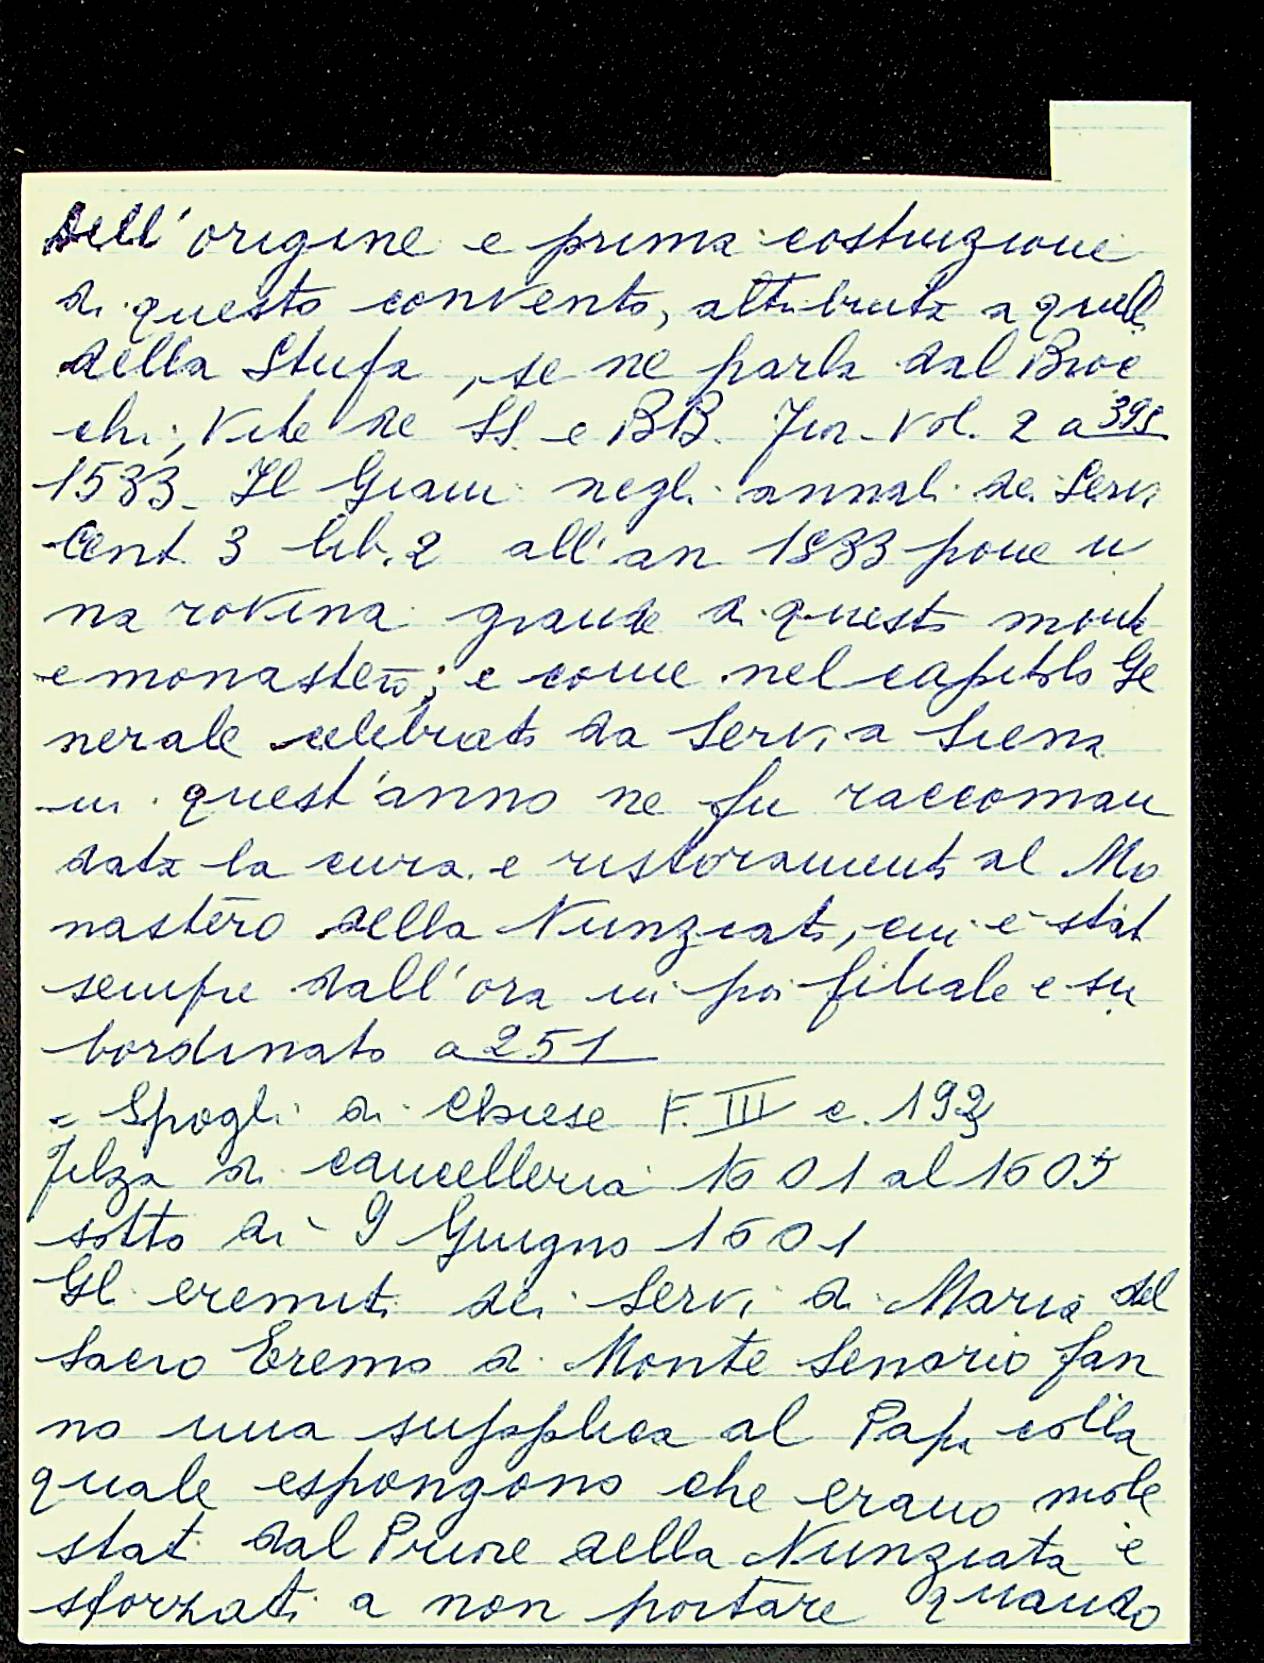 Dell'origine e prima costruzione
di questo convento, attribuita a quelli
della Stufa, se ne parla dal Broc
chi, Vite de SS e BB. Fior. Vol. 2 a 395
1533. Il Giani negli annali dei Servi
Cent. 3 lib. 2 all'an 1533 pone u
na rovina grande di questo monte
e monastero; e come nel capitolo Ge
nerale celebrato da Servi a Siena
in quest'anno ne fu raccoman
data la cura e ristoramento al Mo
nastero della Nunziata, cui è stato
sempre dall'ora in poi filiale e su
bordinato a 251
= Spogli di Chiese F. III c. 192
Filza di cancelleria 1601 al 1605
sotto dì 9 Giugno 1601
Gl eremiti dei Servi di Maria del
Sacro Eremo di Monte Senario fan
no una supplica al Papa colla
quale espongono che erano mole
stati dal Priore della Nunziata e
sforzati a non portare quando